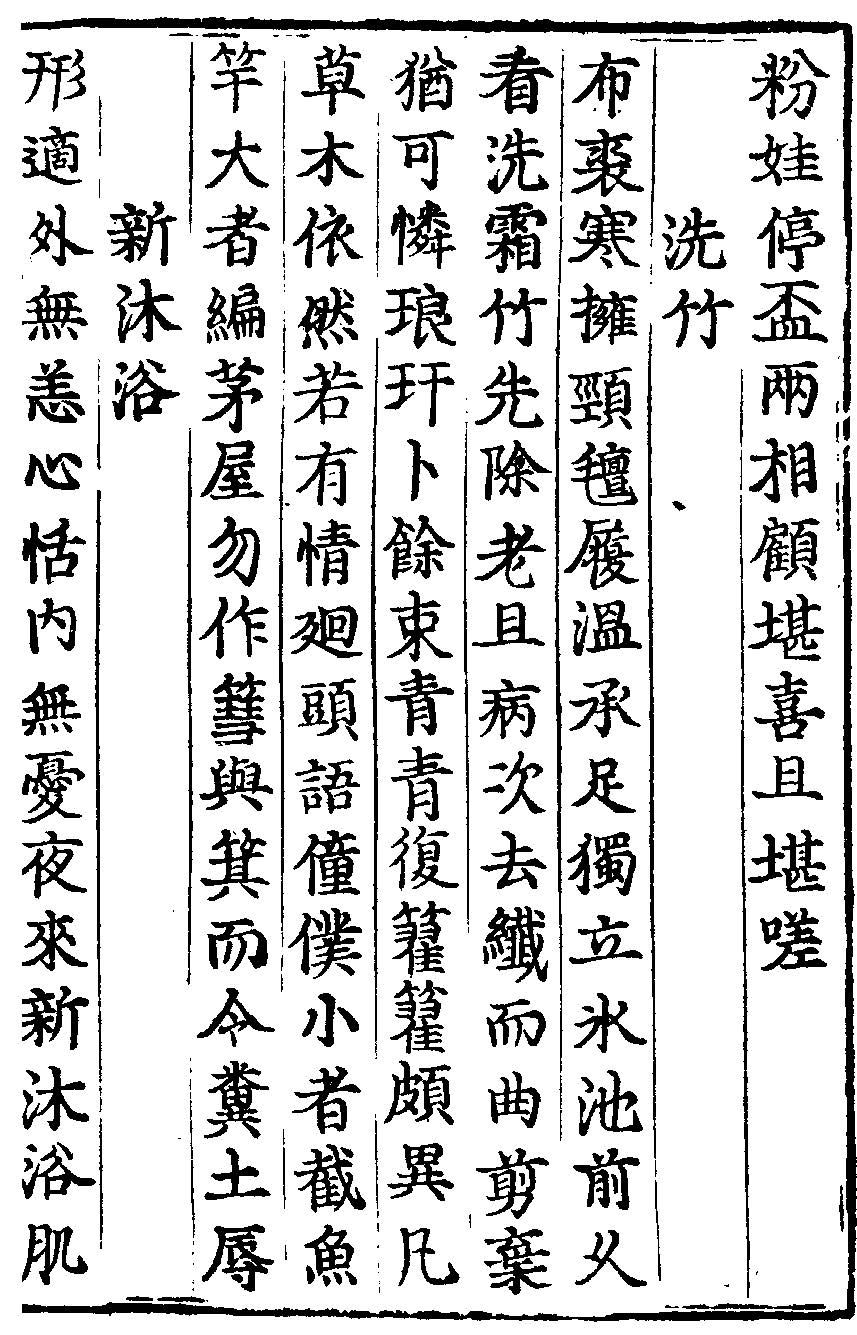 粉娃停盃兩相顧堪喜且堪嗟
洗竹
布裘寒擁頸氊履溫承足獨立氷池前乆
看洗霜竹先除老且病次去纖而曲剪棄
猶可憐琅玕卜餘束青青復籊籊頗異凡
草木依然若有情廻頭語僮僕小者截魚
竿大者編茅屋勿作篲與箕而令糞土辱
新沐浴
形適外無恙心恬内無憂夜來新沐浴肌